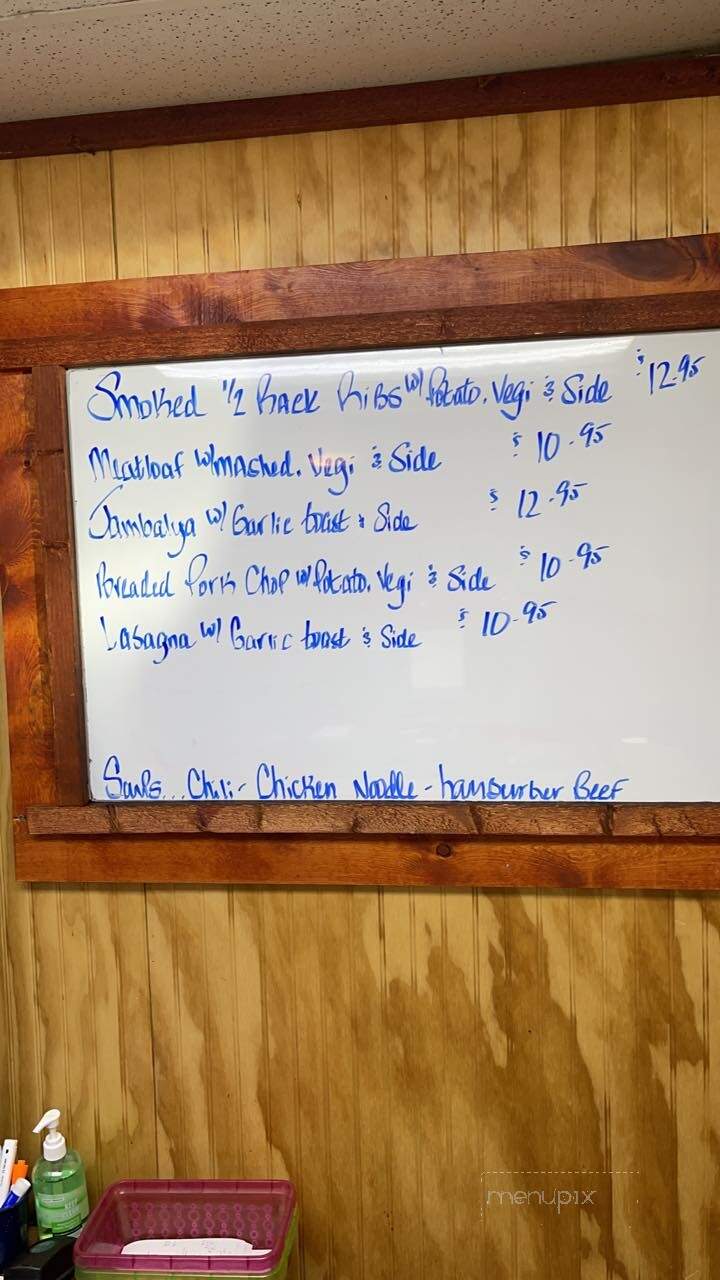 Smoked 1/2 Rack Ribs w/ Potato, Vegi & Side $12.95
Meatloaf w/mashed, Vegi & Side $10.95
Jambalya w/ Garlic toast & Side $12.95
Breaded Pork Chop w/ Potato, Vegi & Side $10.95
Lasagna w/ Garlic toast & Side $10.95
Soups... Chili - Chicken Noodle - hamburber Beef
menupix